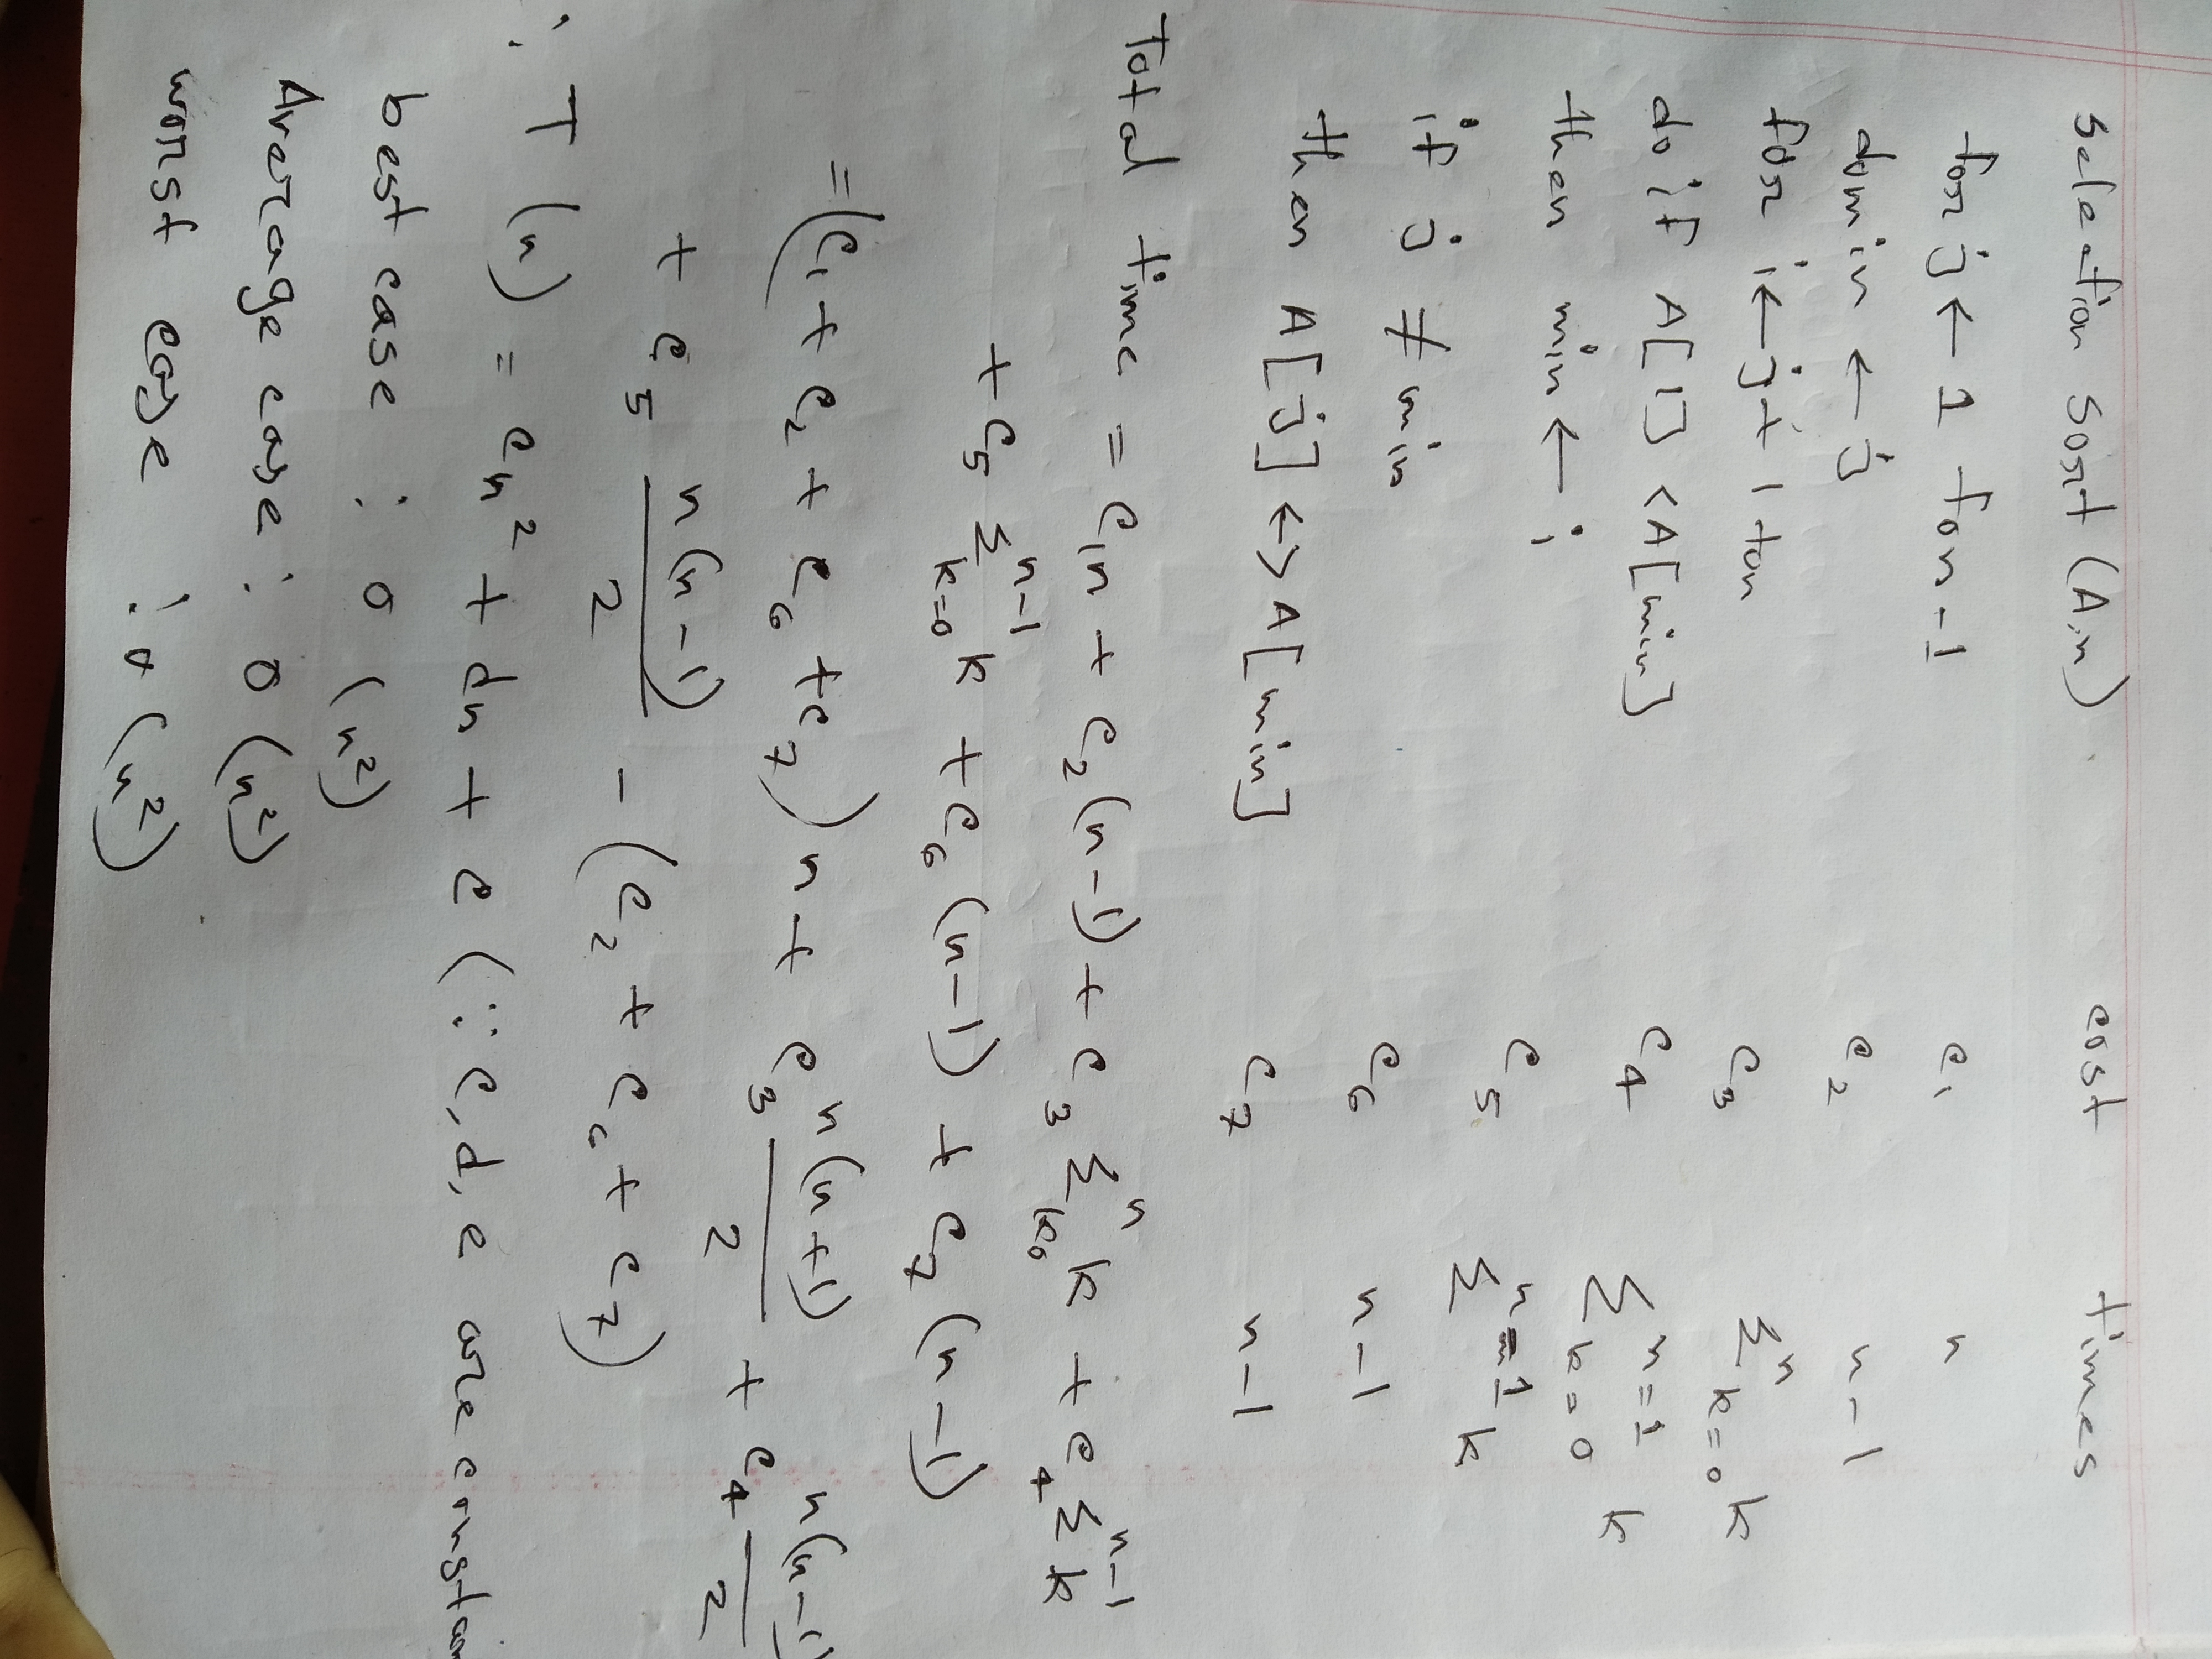 Selection Sort (A,n) cost times
for j ← 1 to n-1 c₁ n
do min ← j c₂ n-1
for i ← j+1 to n c₃ Σⁿ k=0 k
do if A[i] < A[min] c₄ Σ n=1 k=0 k
then min ← i c₅ Σ n=1 k
if j ≠ min c₆ n-1
then A[j] ↔ A[min] c₇ n-1
Total time = c₁n + c₂(n-1) + c₃ Σⁿ k=0 k + c₄ Σⁿ⁻¹ k
+ c₅ Σⁿ⁻¹ k=0 k + c₆(n-1) + c₇(n-1)
= (c₁ + c₂ + c₆ + c₇)n + c₃ n(n+1)/2 + c₄ n(n-1)/2
+ c₅ n(n-1)/2 - (c₂ + c₆ + c₇)
∴ T(n) = cn² + dn + e (∵ c,d,e are constan
best case : O(n²)
Average case : O(n²)
worst case : O(n²)